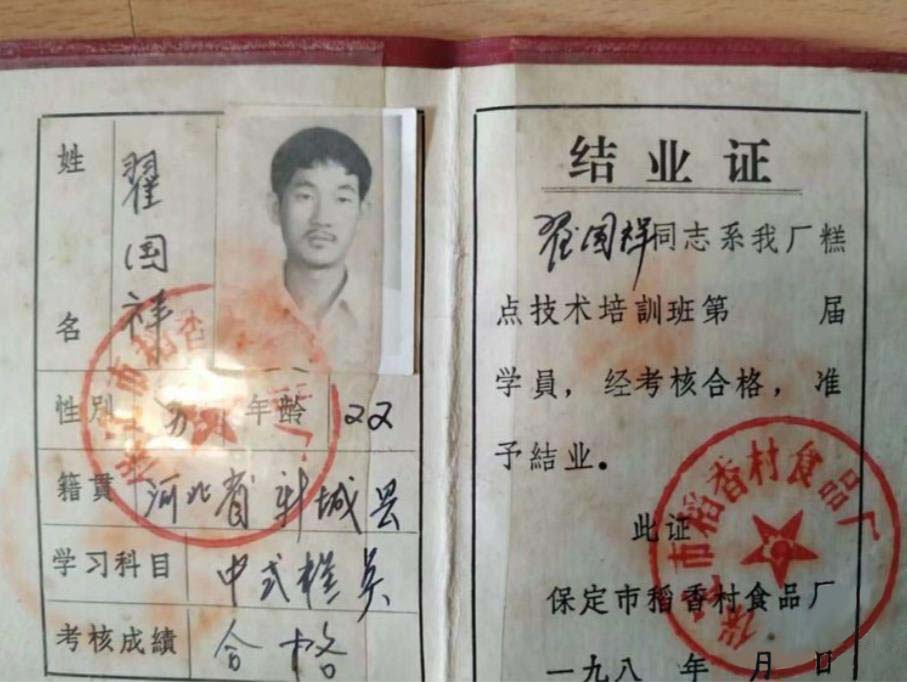 姓名 翟国祥
性别 男 年龄 22
籍貫 河北省新城县
学习科目 中式糕点
考核成績 合格
结业证
翟国祥同志系我厂糕
点技术培訓班第 届
学員，经考核合格，准
予結业。
此证
保定市稻香村食品厂
一九八 年 月 日
保定市稻香村食品厂